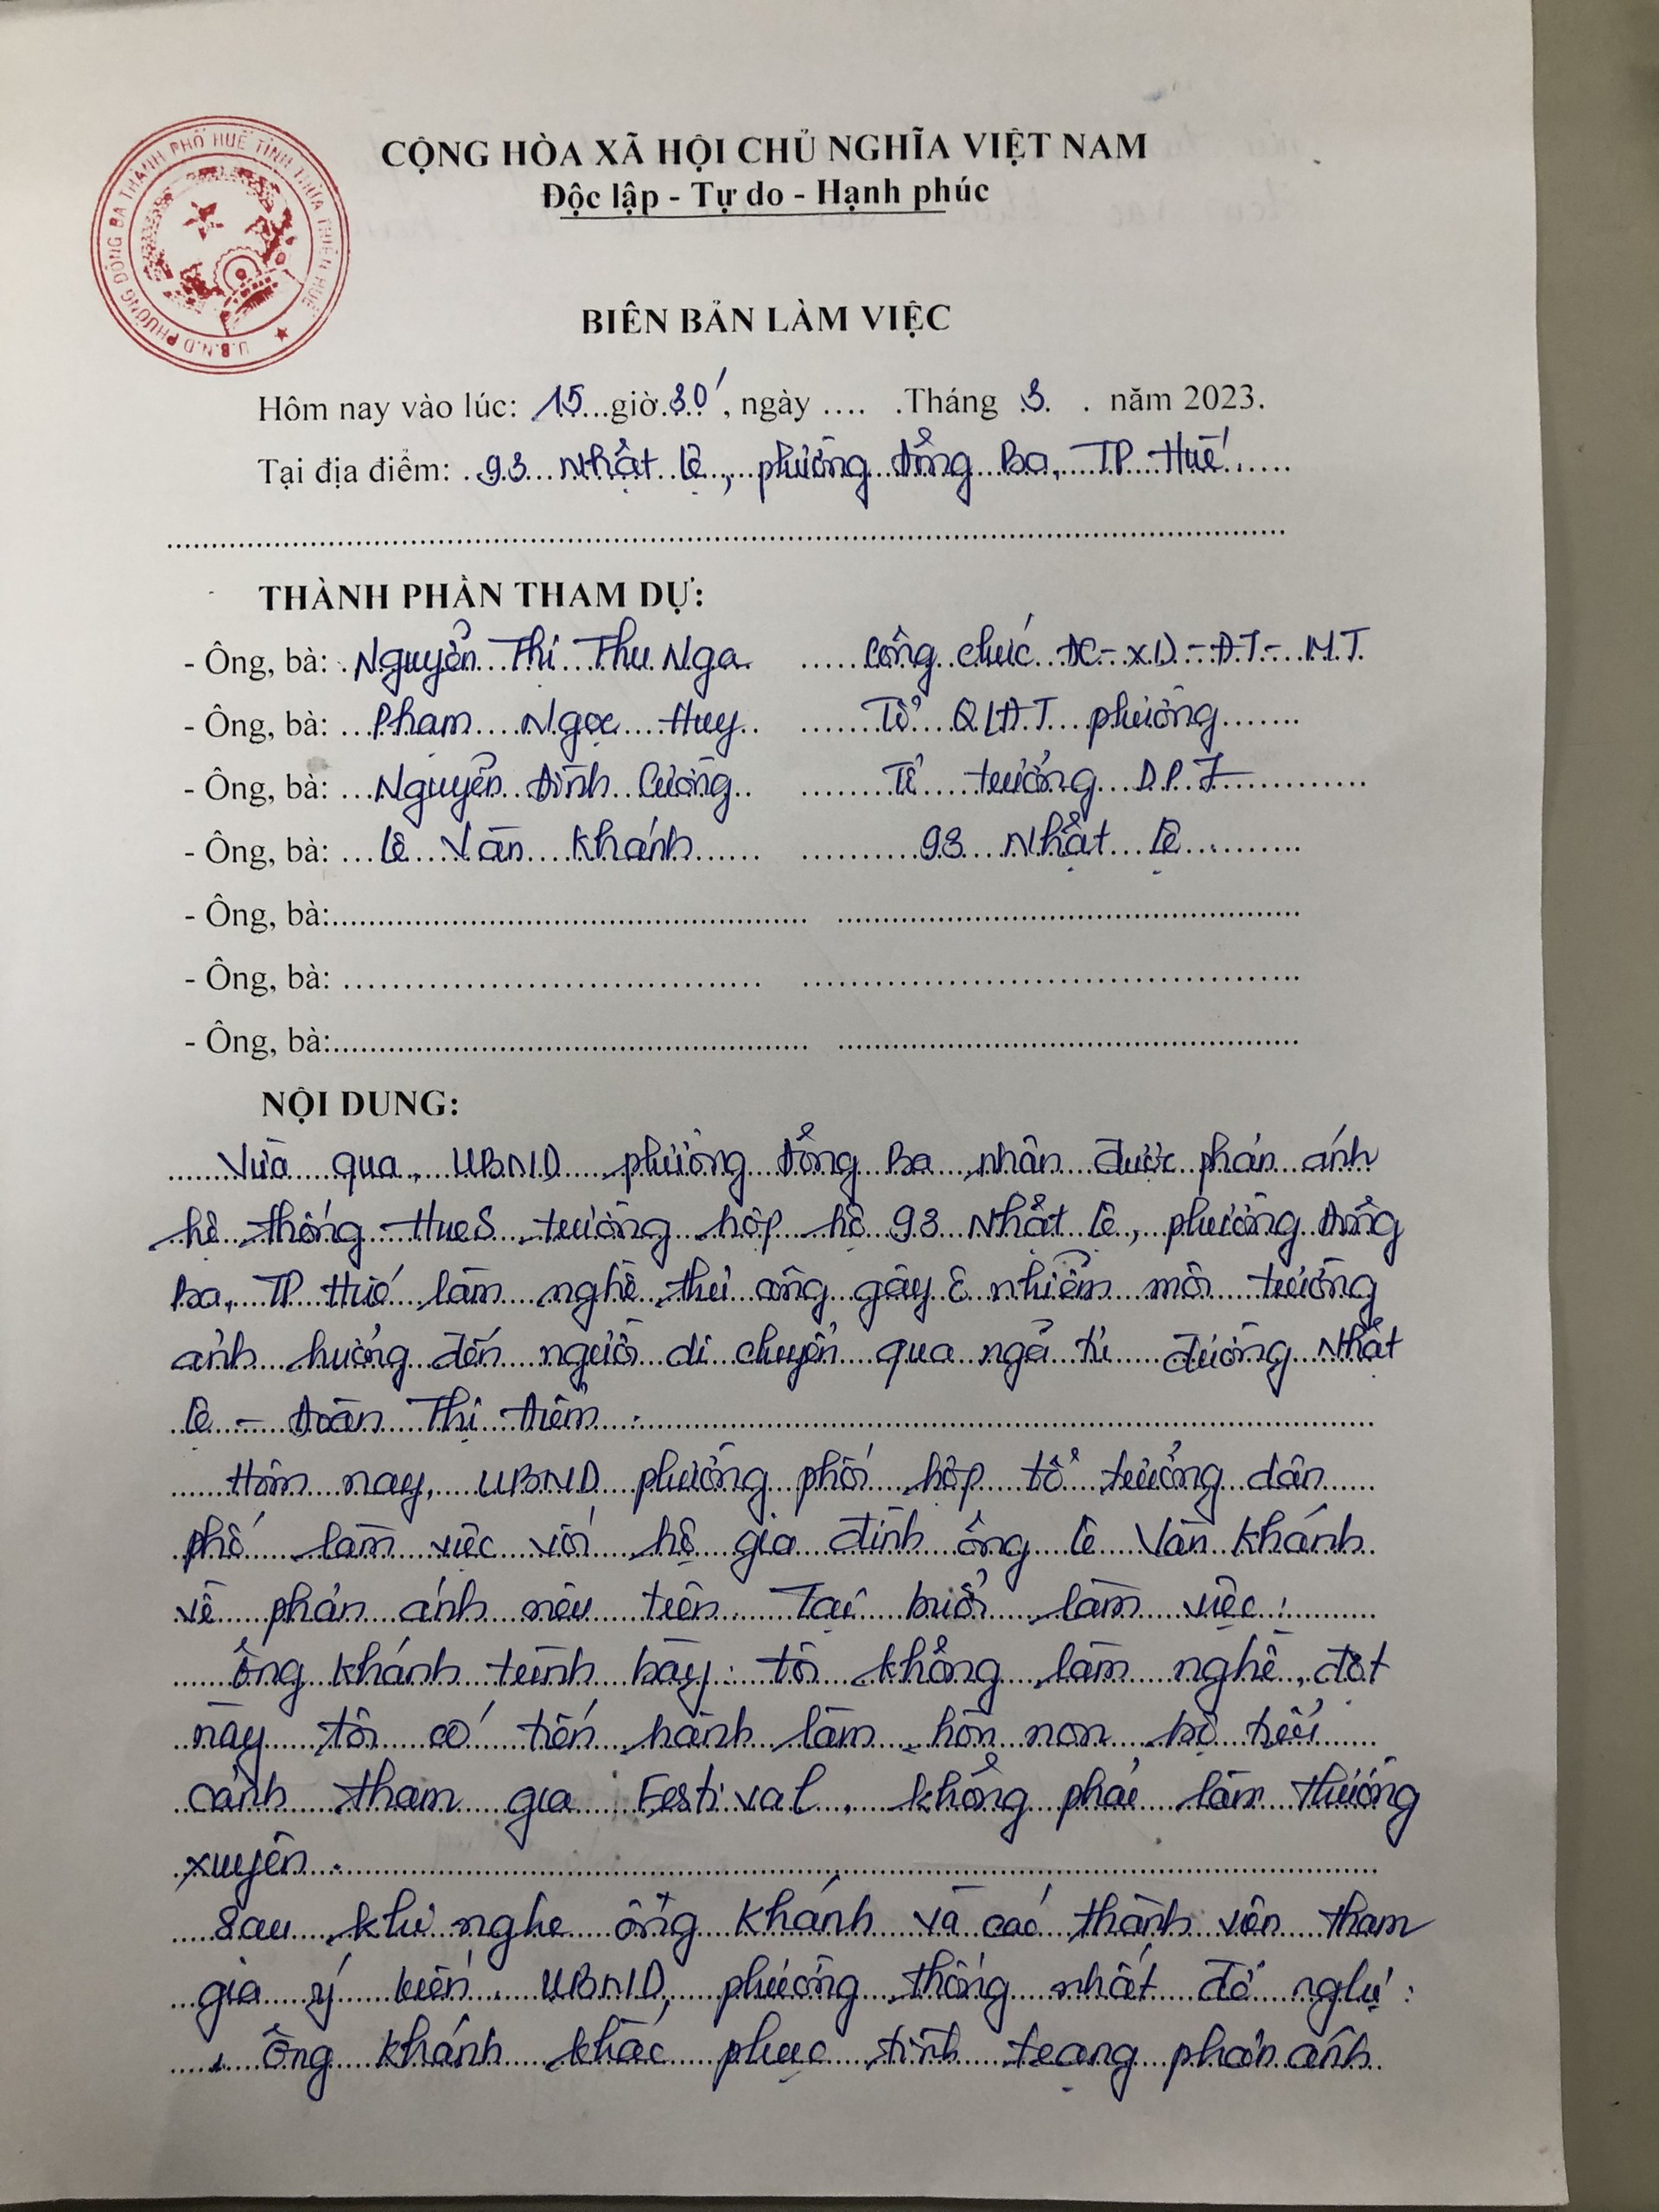 U.B.N.D PHƯỜNG ĐÔNG BA THÀNH PHỐ HUẾ TỈNH THỪA THIÊN HUẾ
CỘNG HÒA XÃ HỘI CHỦ NGHĨA VIỆT NAM
Độc lập - Tự do - Hạnh phúc
BIÊN BẢN LÀM VIỆC
Hôm nay vào lúc: 15 giờ 30', ngày .... Tháng 3 . năm 2023.
Tại địa điểm: 93 Nhật Lệ, phường Đông Ba, TP Huế
THÀNH PHẦN THAM DỰ:
- Ông, bà: Nguyễn Thị Thu Nga Công chức ĐC - XD - ĐT - MT
- Ông, bà: Phạm Ngọc Huy Tổ QLĐT phường
- Ông, bà: Nguyễn Đình Cường Tổ trưởng DP 7
- Ông, bà: Lê Văn Khánh 93 Nhật Lệ
- Ông, bà:
- Ông, bà:
- Ông, bà:
NỘI DUNG:
Vừa qua, UBND phường Đông Ba nhận được phản ánh
hệ thống HueS trường hợp hộ 93 Nhật Lệ, phường Đông
Ba, TP Huế làm nghề thủ công gây ô nhiễm môi trường
ảnh hưởng đến người di chuyển qua ngã tư đường Nhật
Lệ - Đoàn Thị Điểm.
Hôm nay, UBND phường phối hợp tổ trưởng dân
phố làm việc với hộ gia đình ông Lê Văn Khánh
về phản ánh nêu trên. Tại buổi làm việc:
Ông Khánh trình bày: tôi không làm nghề, đợt
này tôi có tiến hành làm hòn non bộ tiểu
cảnh tham gia Festival, không phải làm thường
xuyên.
Sau khi nghe ông Khánh và các thành viên tham
gia ý kiến, UBND phường thống nhất đề nghị:
Ông Khánh khắc phục tình trạng phản ánh